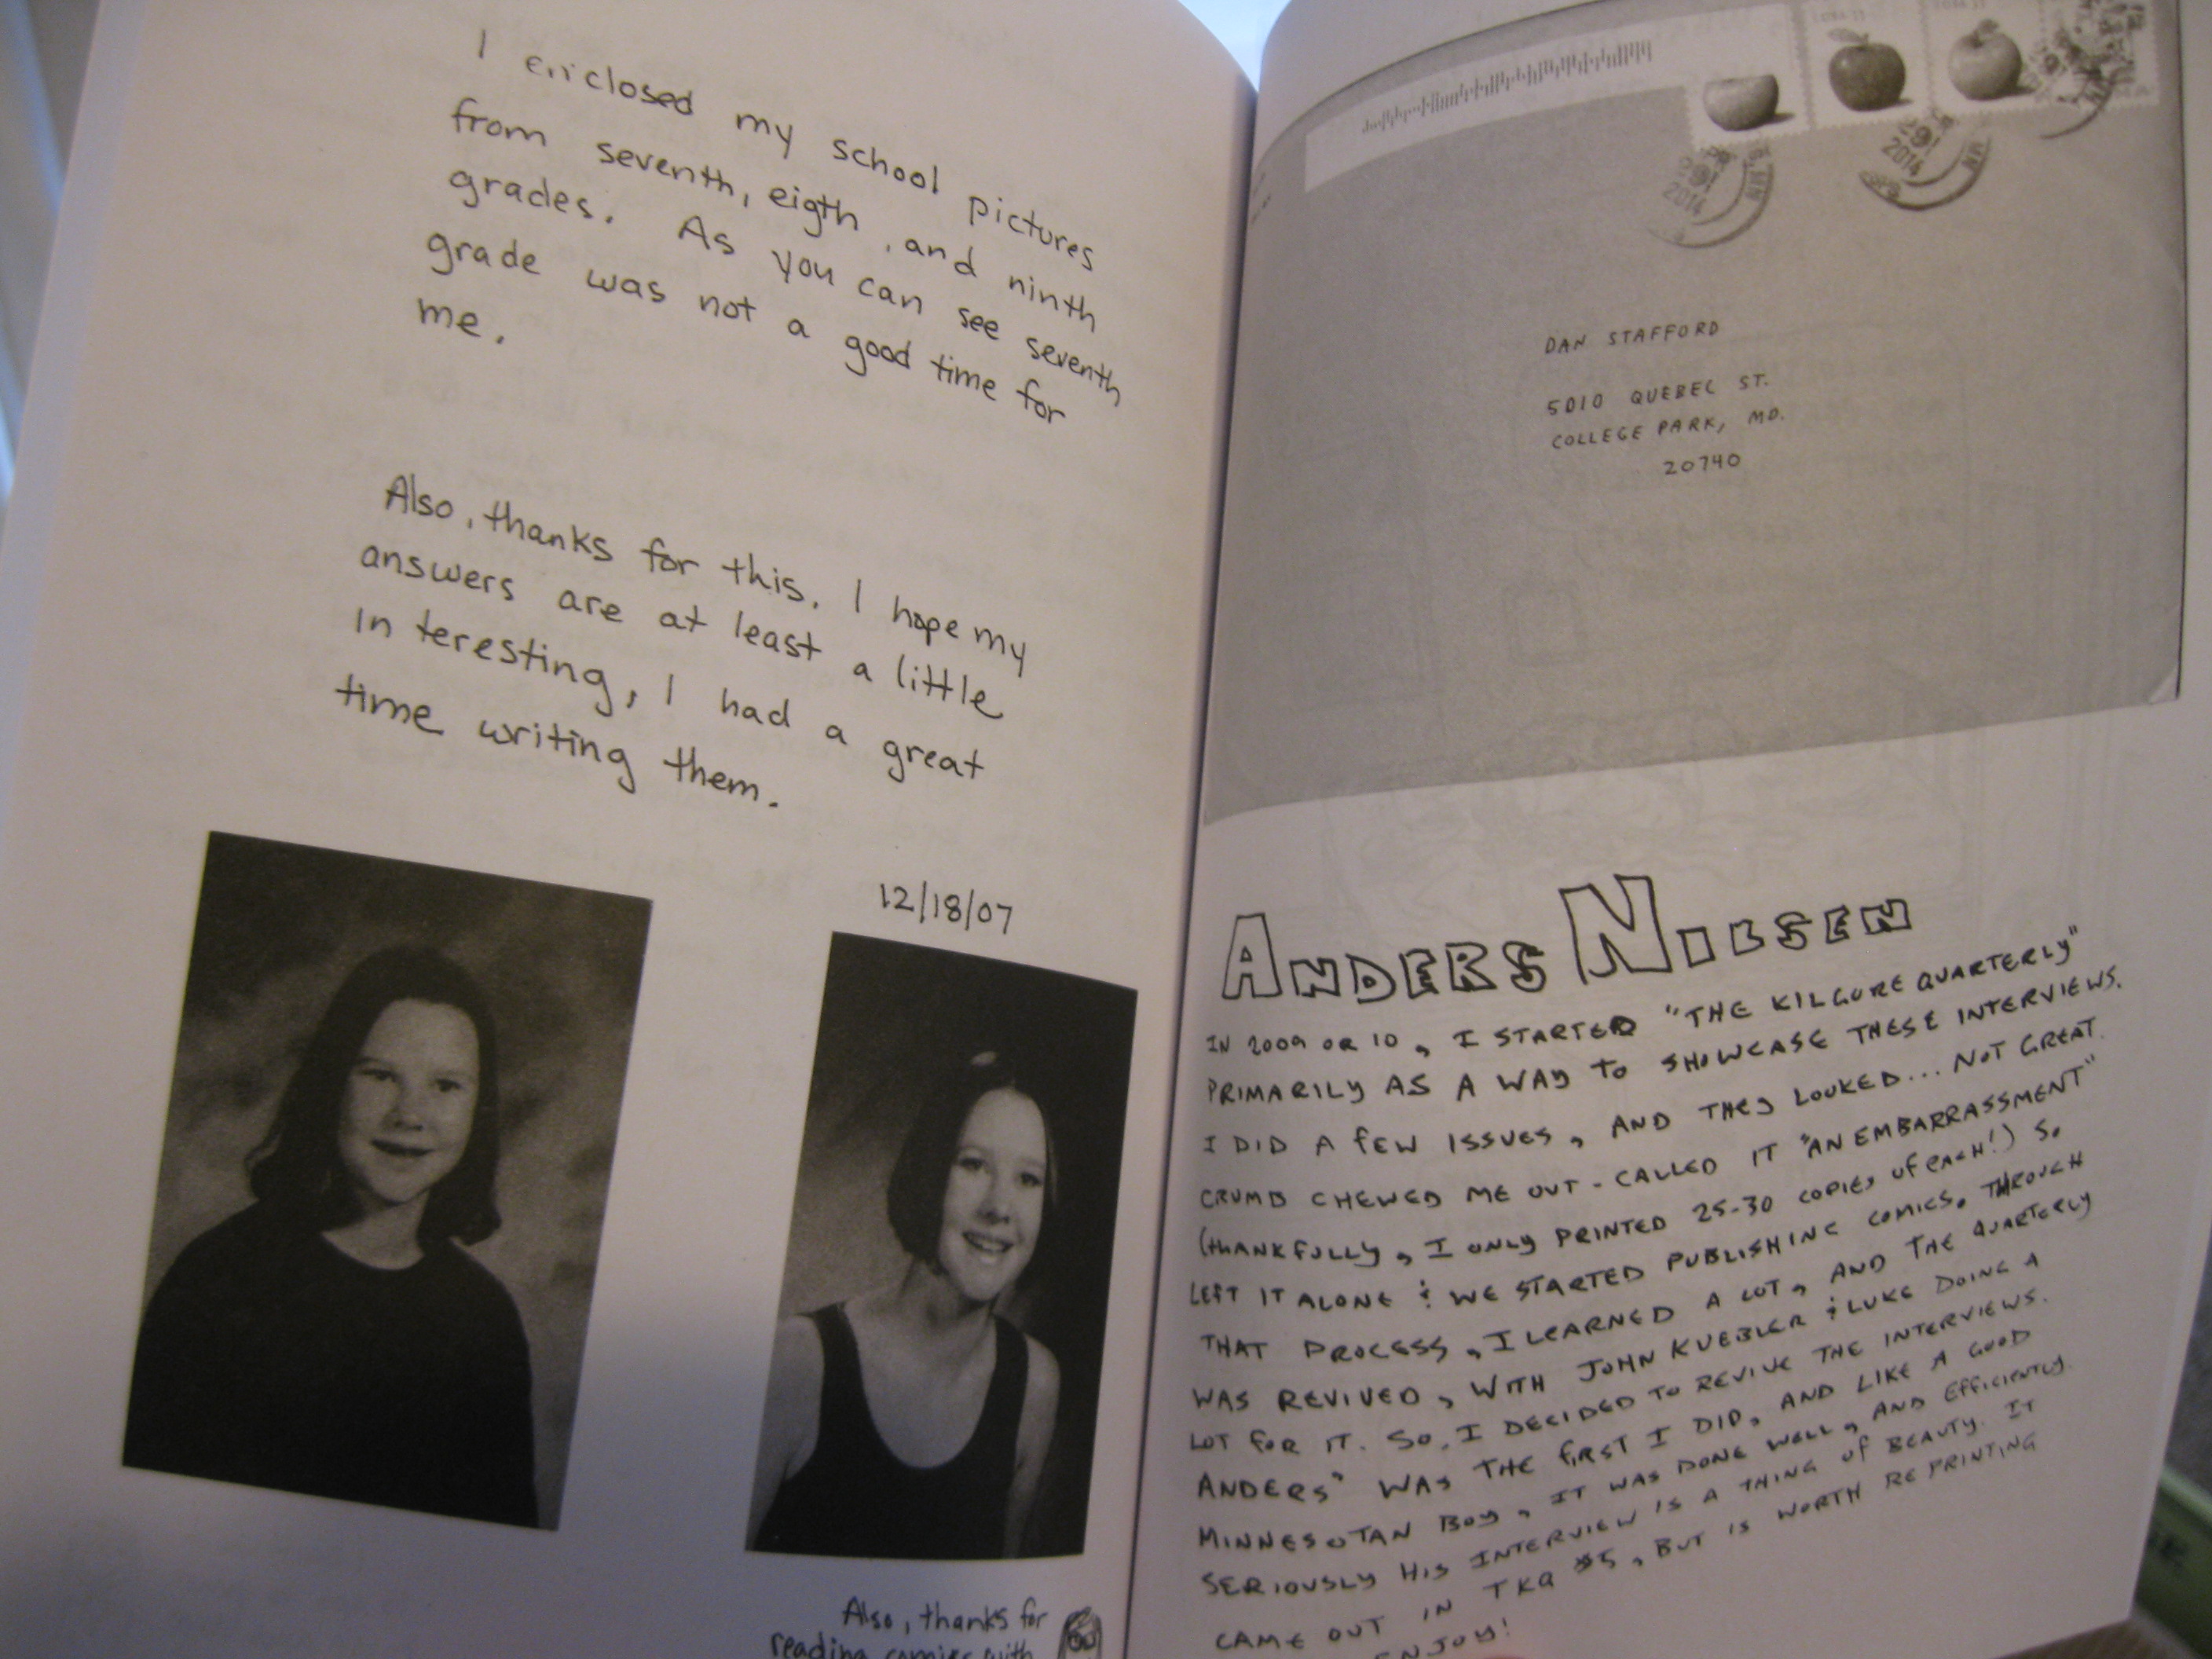 I enclosed my school pictures
from seventh, eigth, and ninth
grades. As you can see seventh
grade was not a good time for
me.
Also, thanks for this. I hope my
answers are at least a little
in teresting, I had a great
time writing them.
12/18/07
Also, thanks for
reading comics with
2014
MN
2014
MN
DAN STAFFORD
5010 QUEBEC ST.
COLLEGE PARK, MD.
20740
ANDERS NILSEN
IN 2009 OR 10, I STARTED "THE KILGORE QUARTERLY"
PRIMARILY AS A WAY TO SHOWCASE THESE INTERVIEWS.
I DID A FEW ISSUES, AND THEY LOOKED... NOT GREAT.
CRUMB CHEWED ME OUT - CALLED IT "AN EMBARRASSMENT"
(THANKFULLY, I ONLY PRINTED 25-30 COPIES OF EACH!) SO
LEFT IT ALONE & WE STARTED PUBLISHING COMICS. THROUGH
THAT PROCESS, I LEARNED A LOT, AND THE QUARTERLY
WAS REVIVED, WITH JOHN KUEBLER & LUKE DOING A
LOT FOR IT. SO, I DECIDED TO REVIVE THE INTERVIEWS.
ANDERS' WAS THE FIRST I DID, AND LIKE A GOOD
MINNESOTAN BOY, IT WAS DONE WELL, AND EFFICIENTLY.
SERIOUSLY HIS INTERVIEW IS A THING OF BEAUTY. IT
CAME OUT IN TKQ #5, BUT IS WORTH REPRINTING
ENJOY!